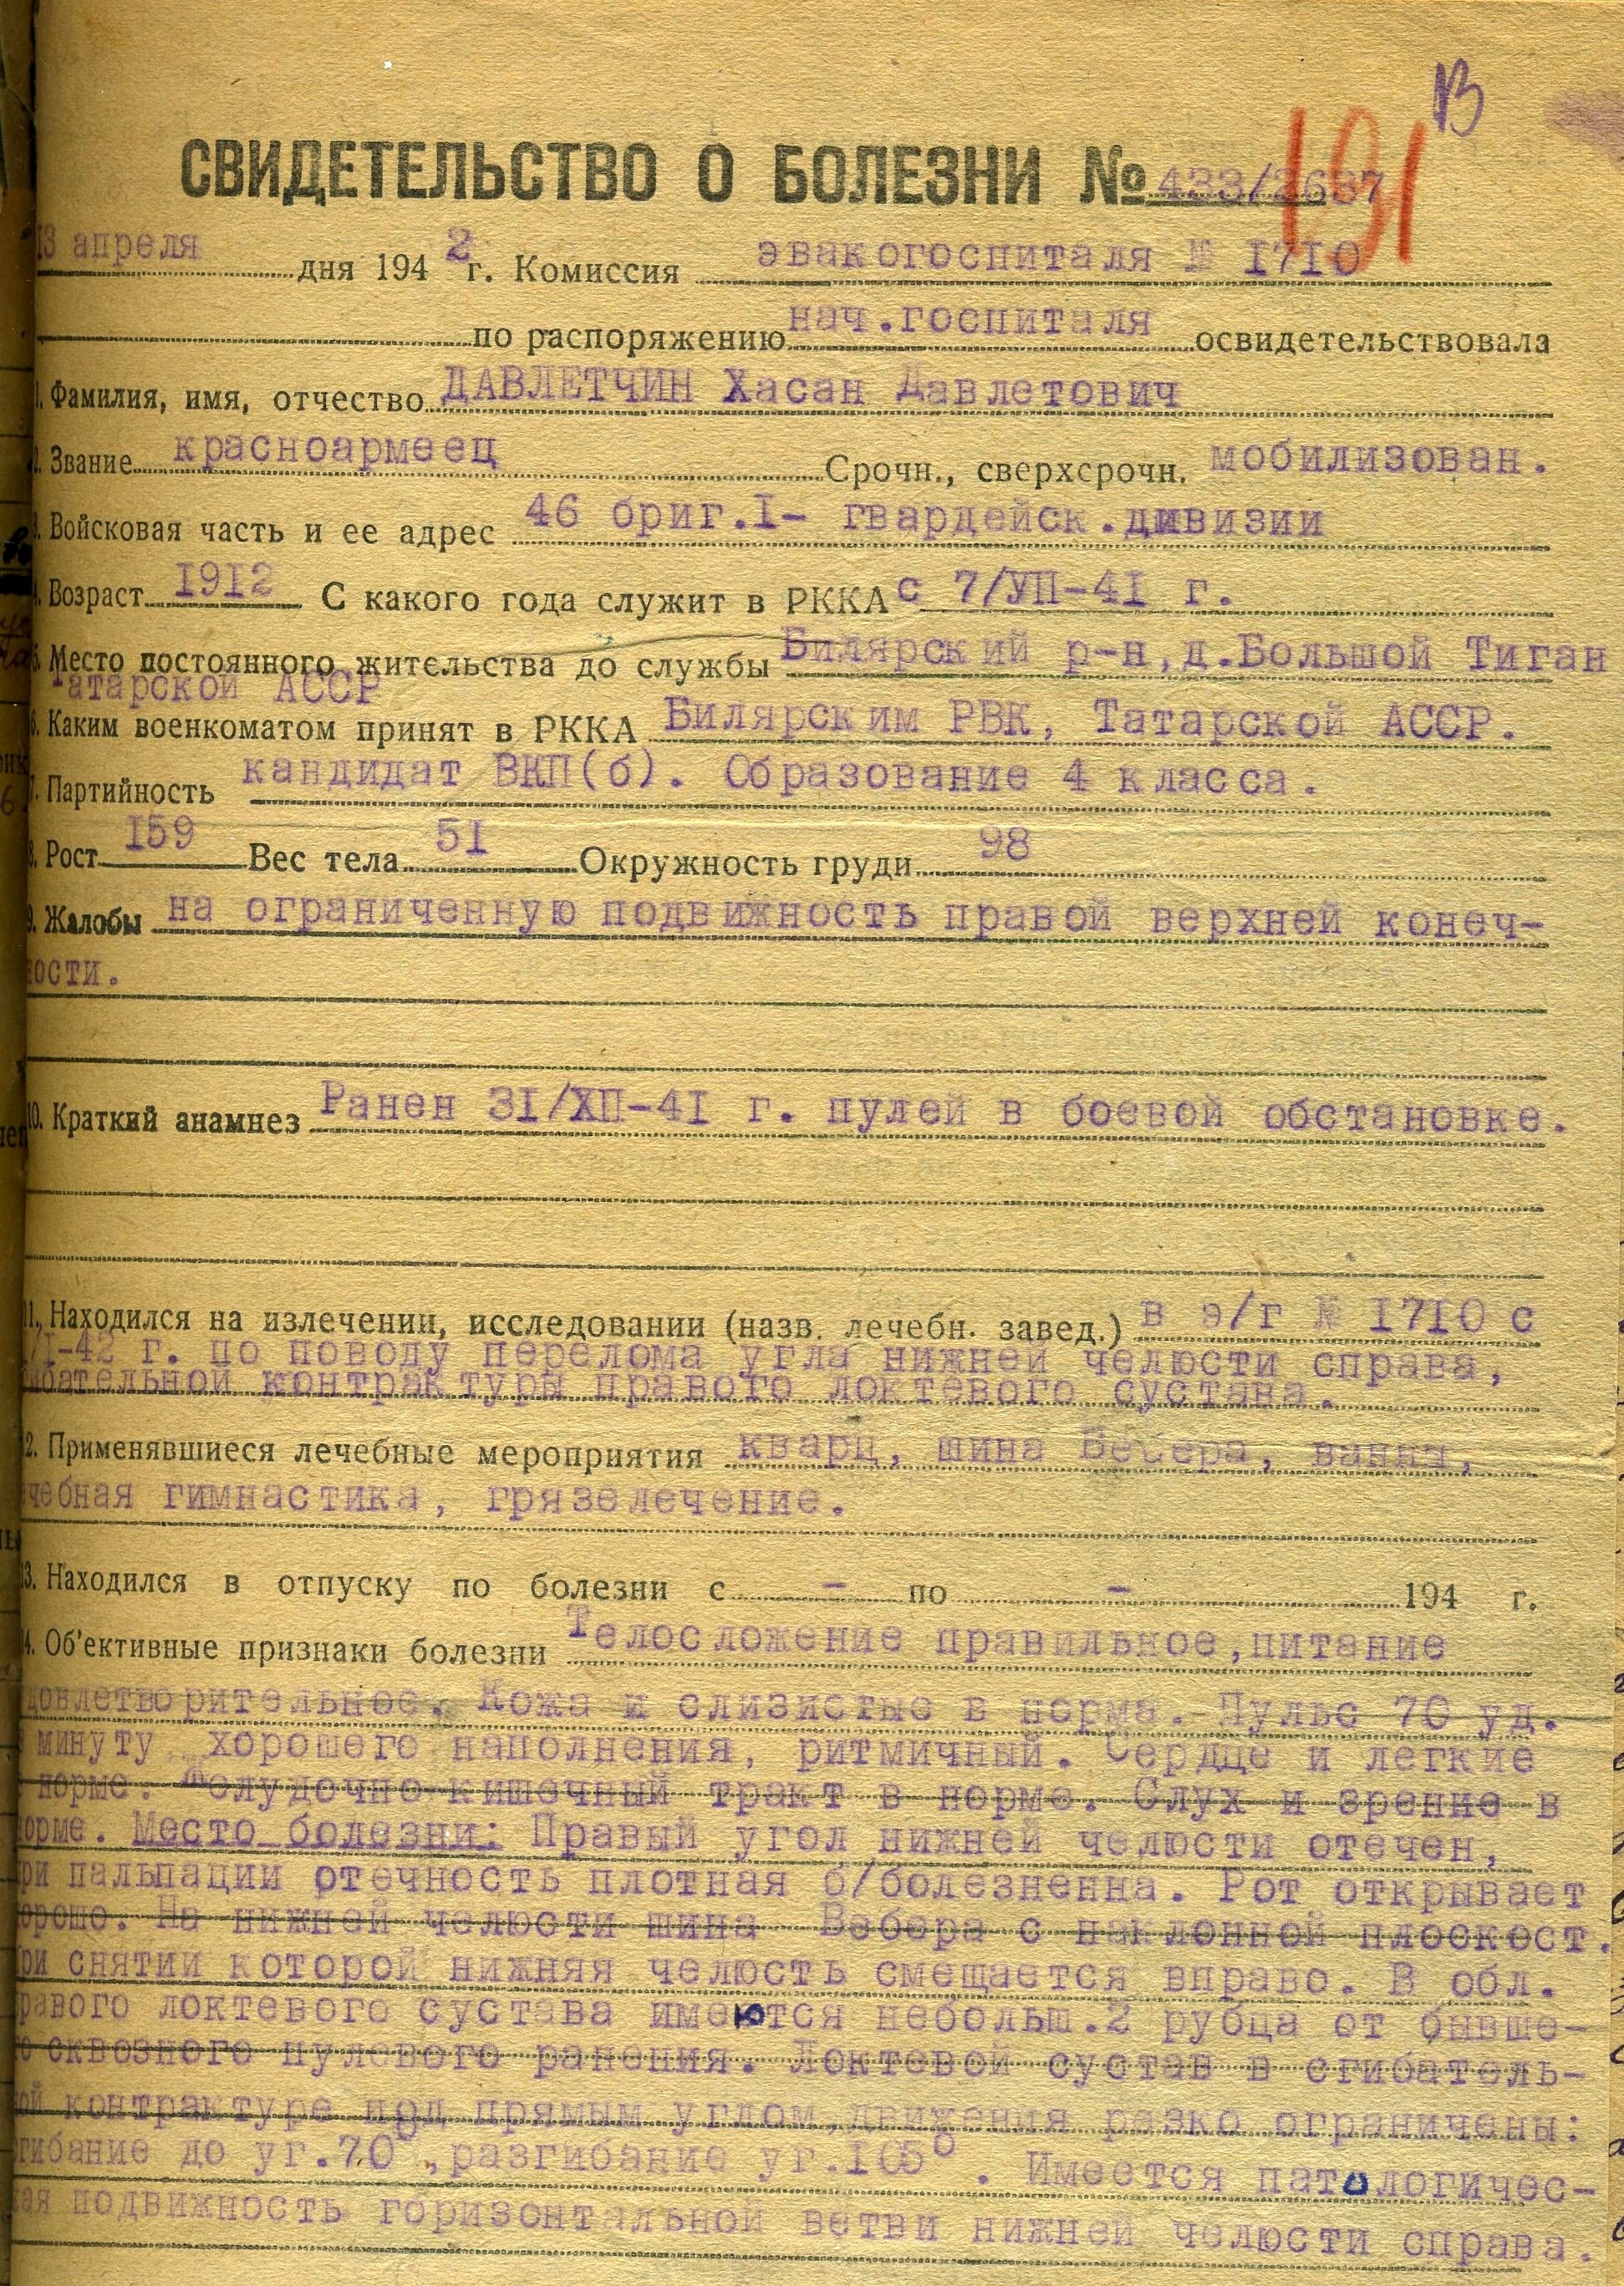 В
191
СВИДЕТЕЛЬСТВО О БОЛЕЗНИ № 433/2637
13 апреля дня 1942 г. Комиссия эвакогоспиталя № 1710
по распоряжению нач.госпиталя освидетельствовала
1. Фамилия, имя, отчество ДАВЛЕТЧИН Хасан Давлетович
2. Звание красноармеец Срочн., сверхсрочн. мобилизован.
3. Войсковая часть и ее адрес 46 бриг.I- гвардейск.дивизии
4. Возраст 1912 С какого года служит в РККА с 7/УП-41 г.
5. Место постоянного жительства до службы Билярский р-н,д.Большой Тиган
атарской АССР
6. Каким военкоматом принят в РККА Билярским РВК, Татарской АССР.
7. Партийность кандидат ВКП(б). Образование 4 класса.
8. Рост 159 Вес тела 51 Окружность груди 98
9. Жалобы на ограниченную подвижность правой верхней конеч-
ности.
10. Краткий анамнез Ранен 31/ХП-41 г. пулей в боевой обстановке.
11. Находился на излечении, исследовании (назв. лечебн. завед.) в э/г № 1710 с
/I-42 г. по поводу перелома угла нижней челюсти справа,
ибательной контрактуры правого локтевого сустава.
12. Применявшиеся лечебные мероприятия кварц, шина Вебера, ванна,
чебная гимнастика, грязелечение.
13. Находился в отпуску по болезни с - по - 194 г.
14. Об'ективные признаки болезни Телосложение правильное,питание
довлетворительное. Кожа и слизистые в норме. Пульс 70 уд.
минуту, хорошего наполнения, ритмичный. Сердце и легкие
норме. Желудочно-кишечный тракт в норме. Слух и зрение в
орме. Место болезни: Правый угол нижней челюсти отечен,
ри пальпации отечность плотная б/болезненна. Рот открывает
орошо. На нижней челюсти шина Вебера с наклонной плоскост.
ри снятии которой нижняя челюсть смещается вправо. В обл.
равого локтевого сустава имеются небольш.2 рубца от бывше-
о сквозного пулевого ранения. Локтевой сустав в сгибатель-
ой контрактуре под прямым углом,движения резко ограничены:
гибание до уг.70°,разгибание уг.105°. Имеется патологичес-
ая подвижность горизонтальной ветви нижней челюсти справа.